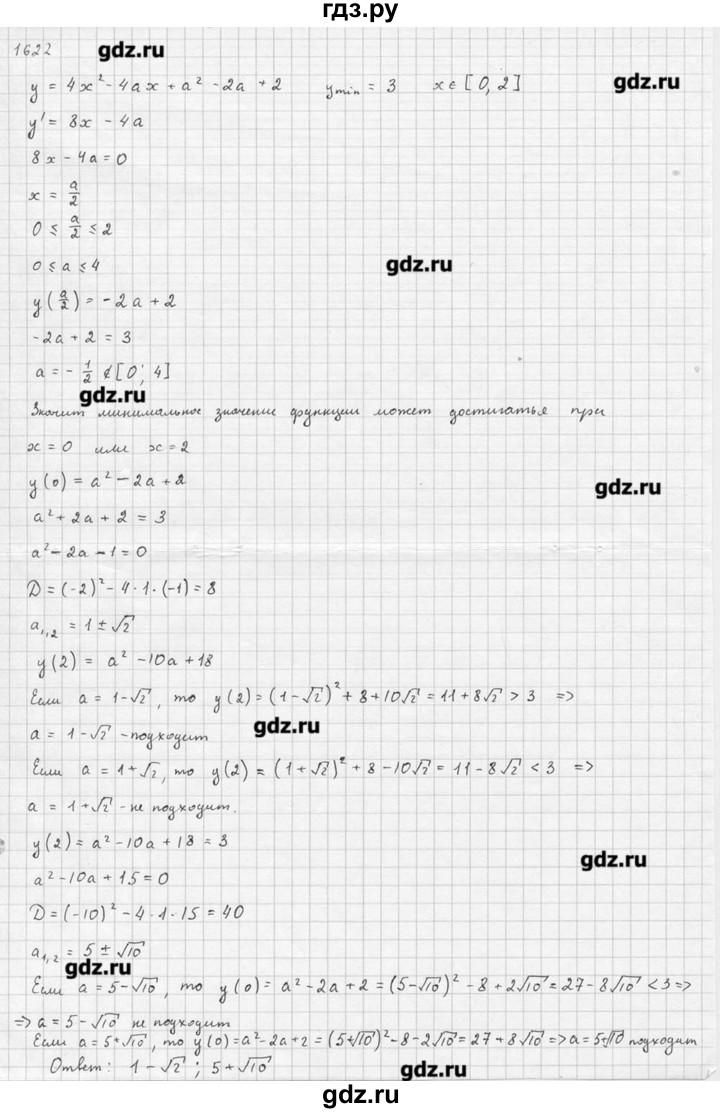 гдз.ру
1622 gdz.ru
y = 4x² - 4ax + a² - 2a + 2 y min = 3 x ∈ [0, 2] gdz.ru
y' = 8x - 4a
8x - 4a = 0
x = a/2
0 ≤ a/2 ≤ 2
0 ≤ a ≤ 4 gdz.ru
y(a/2) = -2a + 2
-2a + 2 = 3
a = - 1/2 ∉ [0; 4]
gdz.ru
Значит минимальное значение функции может достигаться при
x = 0 или x = 2
y(0) = a² - 2a + 2 gdz.ru
a² + 2a + 2 = 3
a² - 2a - 1 = 0
D = (-2)² - 4·1·(-1) = 8
a₁,₂ = 1 ± √2
y(2) = a² - 10a + 18
Если a = 1-√2, то y(2) = (1-√2)² + 8 + 10√2 = 11 + 8√2 > 3 =>
a = 1-√2 - подходит gdz.ru
Если a = 1+√2, то y(2) = (1+√2)² + 8 - 10√2 = 11 - 8√2 < 3 =>
a = 1+√2 - не подходит.
y(2) = a² - 10a + 18 = 3 gdz.ru
a² - 10a + 15 = 0
D = (-10)² - 4·1·15 = 40
a₁,₂ = 5 ± √10
gdz.ru
Если a = 5-√10, то y(0) = a² - 2a + 2 = (5-√10)² - 8 + 2√10 = 27 - 8√10 < 3 =>
=> a = 5 - √10 не подходит
Если a = 5+√10, то y(0) = a² - 2a + 2 = (5+√10)² - 8 - 2√10 = 27 + 8√10 => a = 5+√10 подходит
Ответ: 1 - √2 ; 5 + √10 gdz.ru
гдз.ру